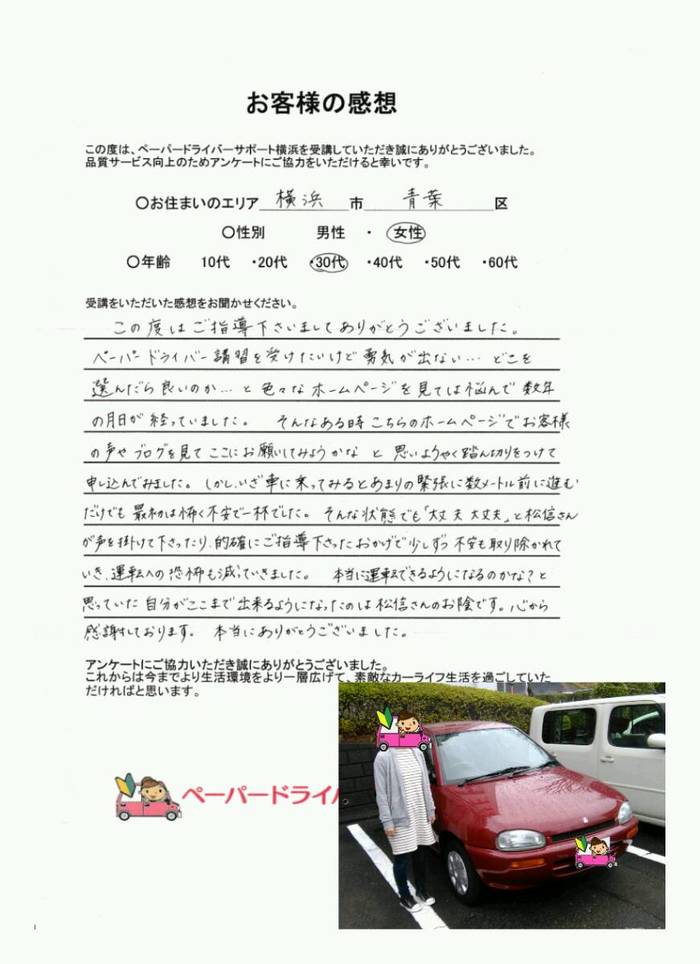 お客様の感想
この度は、ペーパードライバーサポート横浜を受講していただき誠にありがとうございました。
品質サービス向上のためアンケートにご協力をいただけると幸いです。
〇お住まいのエリア 横浜 市 青葉 区
〇性別 男性 ・ 女性
〇年齢 10代 ・20代 ・30代 ・40代 ・50代 ・60代
受講をいただいた感想をお聞かせください。
この度はご指導下さいましてありがとうございました。
ペーパードライバー講習を受けたいけど勇気が出ない… どこを
選んだら良いのか… と色々なホームページを見ては悩んで数年
の月日が経っていました。 そんなある時こちらのホームページでお客様
の声やブログを見てここにお願いしてみようかな と 思いようやく踏ん切りをつけて
申し込んでみました。しかし、いざ車に乗ってみるとあまりの緊張に数メートル前に進む
だけでも最初は怖く不安で一杯でした。そんな状態でも「大丈夫大丈夫」と松信さん
が声を掛けて下さったり、的確にご指導下さったおかげで少しずつ不安も取り除かれて
いき、運転への恐怖も減っていきました。 本当に運転できるようになるのかな?と
思っていた自分がここまで出来るようになったのは松信さんのお陰です。心から
感謝しております。 本当にありがとうございました。
アンケートにご協力いただき誠にありがとうございました。
これからは今までより生活環境をより一層広げて、素敵なカーライフ生活を過ごしていた
だければと思います。
ペーパードライバ